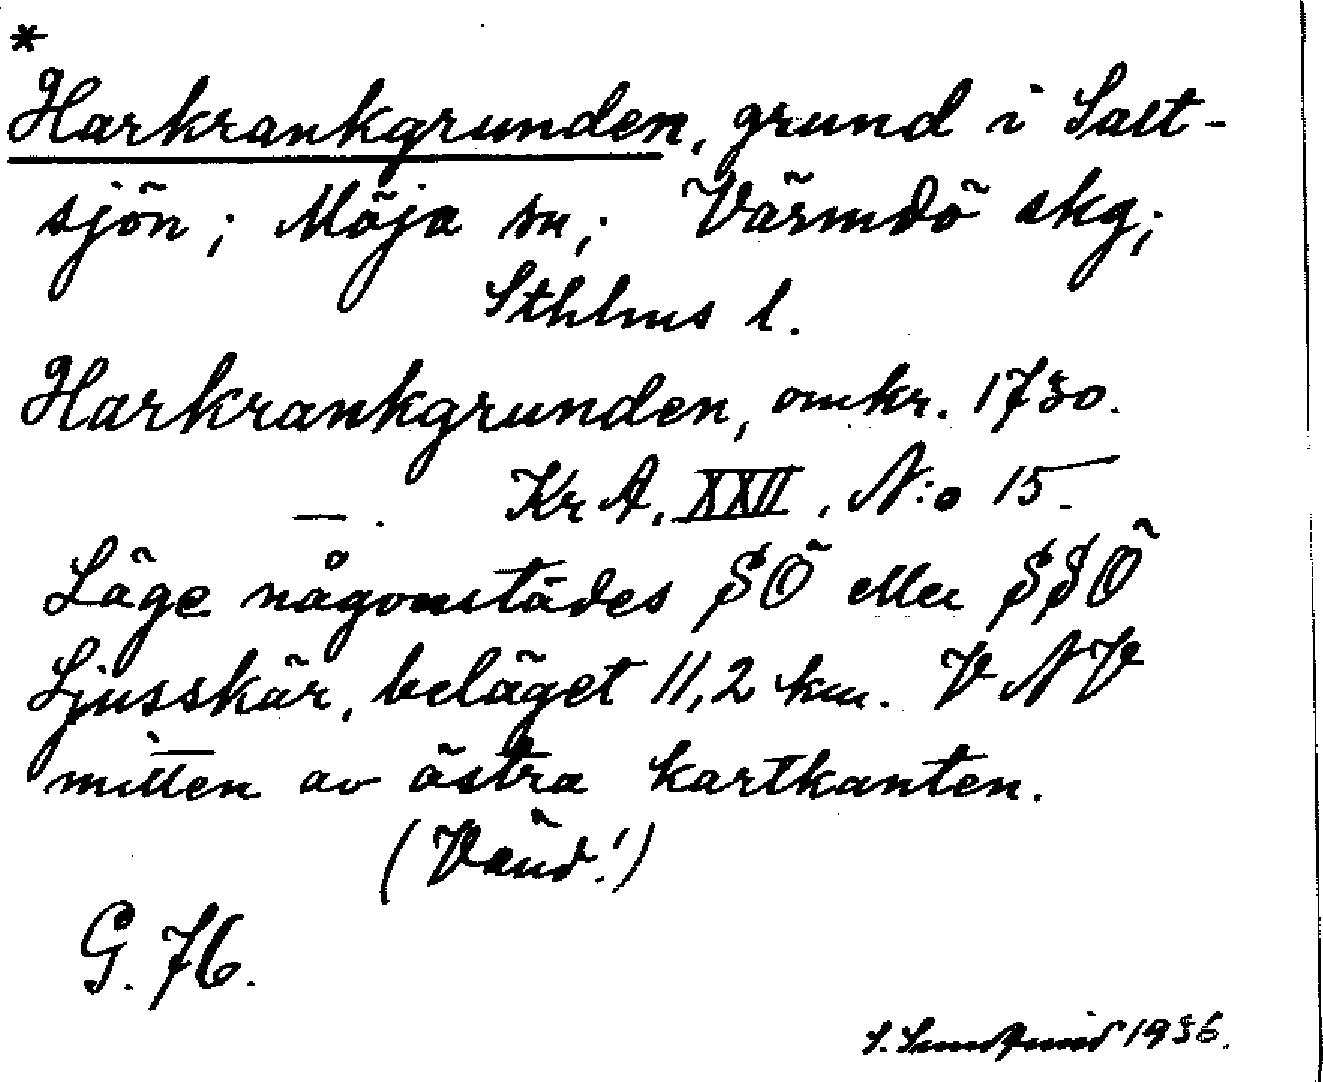 *
Harkrankgrunden, grund i Salt-
sjön; Möja sn; Värmdö skg;
Sthlms l.
Harkrankgrunden, omkr. 1730.
— . KrA, XXII, N:o 15.
Läge någonstädes SÖ eller SSÖ
Ljusskär, beläget 11,2 km. VNV
mitten av östra kartkanten.
(Vänd!)
G. 76.
S. Sundqvist 1936.